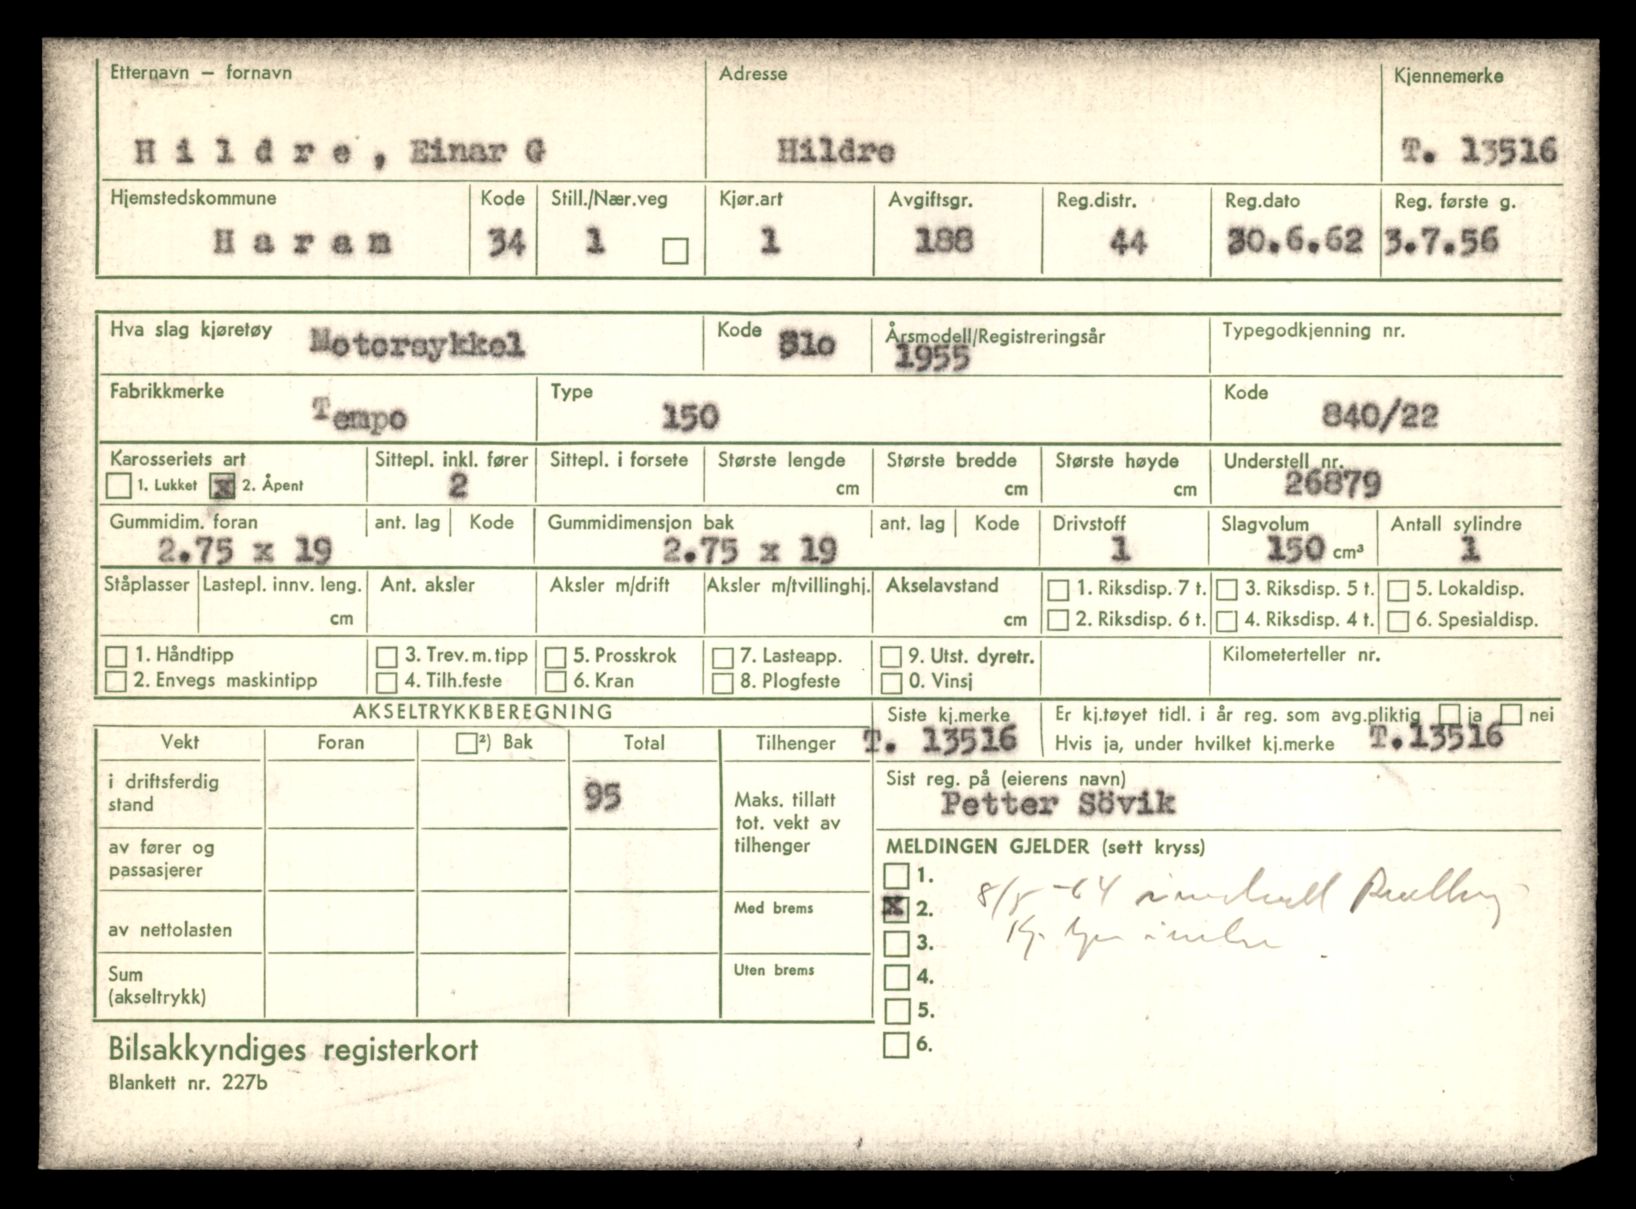 Etternavn – fornavn Adresse Kjennemerke
H i l d r e , Einar G Hildre T. 13516
Hjemstedskommune Kode Still./Nær.veg Kjør.art Avgiftsgr. Reg.distr. Reg.dato Reg. første g.
H a r a m 34 1 1 188 44 30.6.62 3.7.56
Hva slag kjøretøy Motorsykkel Kode 81o Årsmodell/Registreringsår 1955 Typegodkjenning nr.
Fabrikkmerke Tempo Type 150 Kode 840/22
Karosseriets art Sittepl. inkl. fører Sittepl. i forsete Største lengde Største bredde Største høyde Understell nr.
1. Lukket x 2. Åpent 2 cm cm cm 26879
Gummidim. foran ant. lag Kode Gummidimensjon bak ant. lag Kode Drivstoff Slagvolum Antall sylindre
2.75 x 19 2.75 x 19 1 150 cm³ 1
Ståplasser Lastepl. innv. leng. Ant. aksler Aksler m/drift Aksler m/tvillinghj. Akselavstand 1. Riksdisp. 7 t. 3. Riksdisp. 5 t. 5. Lokaldisp.
cm cm 2. Riksdisp. 6 t. 4. Riksdisp. 4 t. 6. Spesialdisp.
1. Håndtipp 3. Trev. m. tipp 5. Prosskrok 7. Lasteapp. 9. Utst. dyretr. Kilometerteller nr.
2. Envegs maskintipp 4. Tilh.feste 6. Kran 8. Plogfeste 0. Vinsj
AKSELTRYKKBEREGNING Siste kj.merke Er kj.tøyet tidl. i år reg. som avg.pliktig ja nei
Vekt Foran ²) Bak Total Tilhenger T. 13516 Hvis ja, under hvilket kj.merke T.13516
i driftsferdig
stand 95
Sist reg. på (eierens navn)
Petter Sövik
Maks. tillatt
tot. vekt av
tilhenger
av fører og
passasjerer
MELDINGEN GJELDER (sett kryss)
1.
x 2. 8/5 -64
3.
4.
5.
6.
av nettolasten Med brems
Sum
(akseltrykk) Uten brems
Bilsakkyndiges registerkort
Blankett nr. 227b